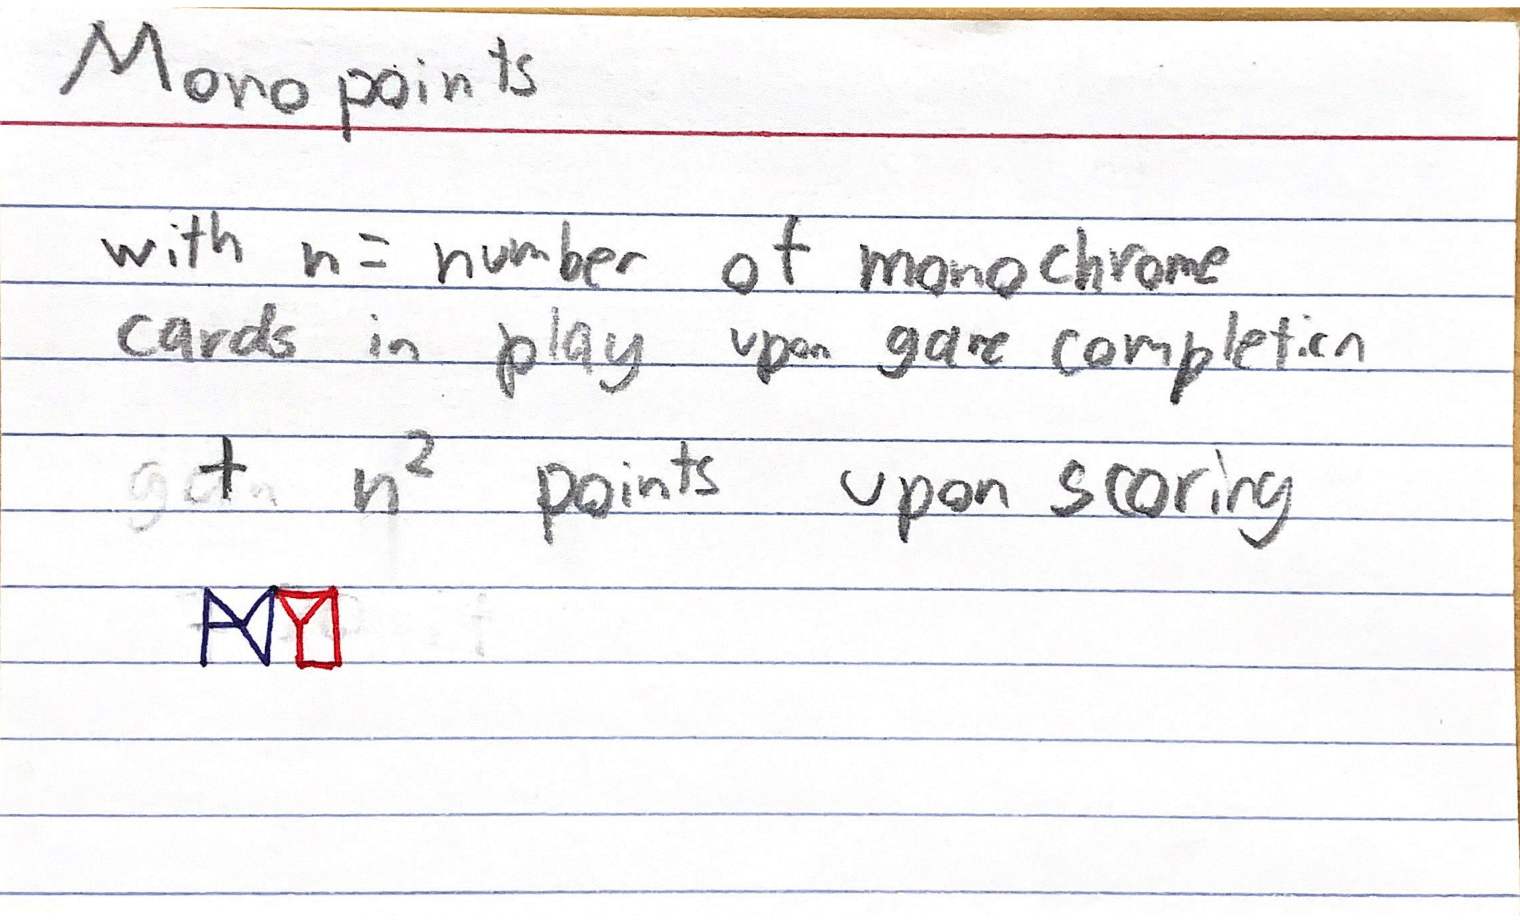 Mono points
with n = number of monochrome
cards in play upon game completion
get n² points upon scoring